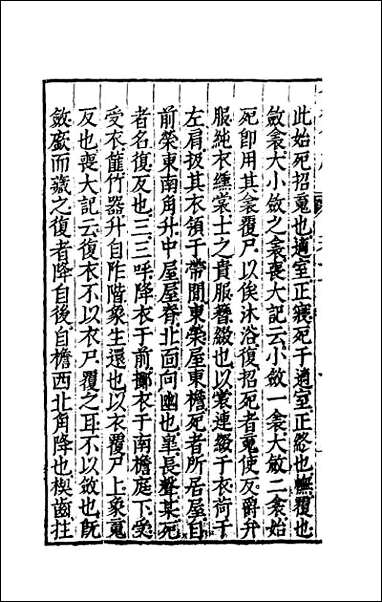 此始死招䰟也適室正寢死于適室正終也幠覆也
斂衾大小斂之衾喪大記云小斂一衾大斂二衾始
死卽用其衾覆尸以俟沐浴復招死者䰟使反爵弁
服純衣纁裳士之貴服簪綴也以裳連綴于衣荷于
左肩扱其衣領于帶閒東榮屋東檐死者所居屋自
前榮東南角升中屋屋脊北面向幽也臯長聲某死
者名復反也三三呼降衣于前擲衣于南檐庭下受
受衣篚竹器升自阼階象生還也以衣覆尸上象䰟
反也喪大記云復衣不以衣尸覆之耳不以斂也旣
斂歛而藏之復者降自後自檐西北角降也楔齒拄